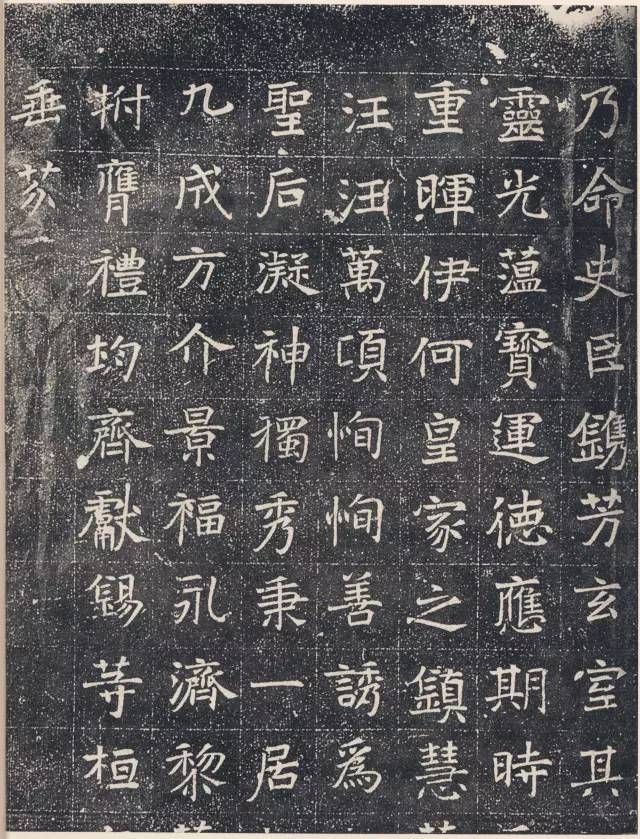 乃命史臣鐫芳玄室其
靈光薀寶運德應期時
重暉伊何皇家之鎮慧
汪汪萬頃恂恂善誘爲
聖后凝神獨秀秉一居
九成方介景福永濟黎
拊膺禮均齊獻錫等桓
垂芬